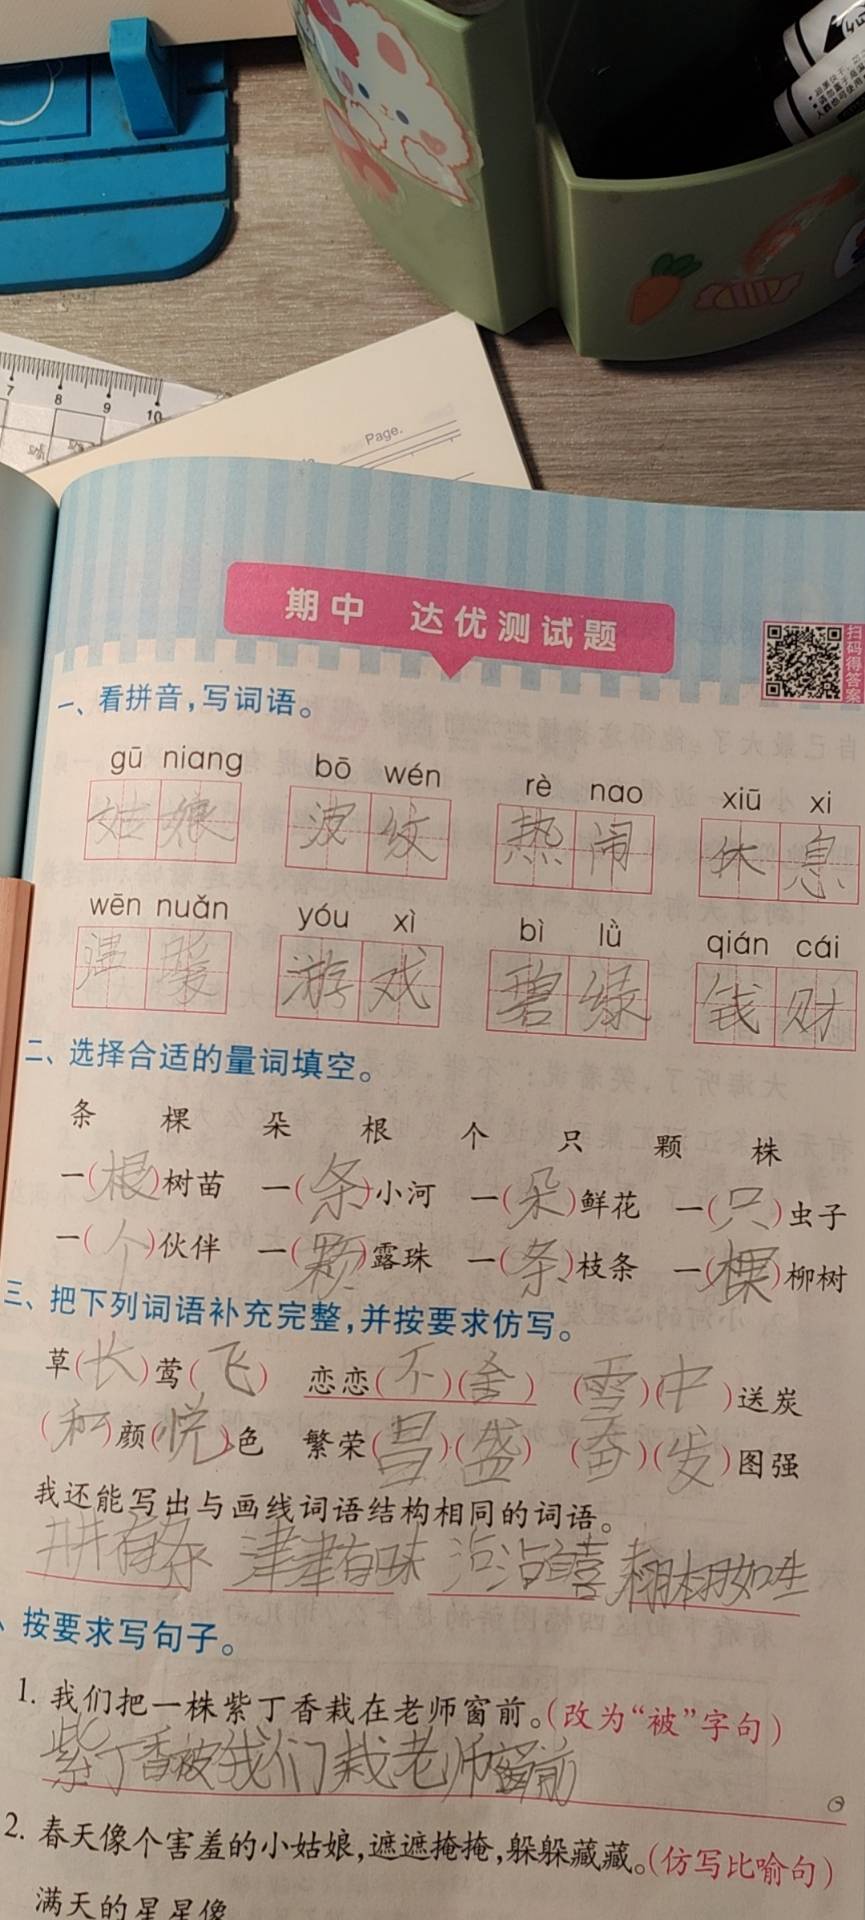 7 8 9 10
Page.
期中 达优测试题
扫码得答案
一、看拼音,写词语。
gū niang bō wén rè nao xiū xi
姑娘 波纹 热闹 休息
wēn nuǎn yóu xì bì lǜ qián cái
温暖 游戏 碧绿 钱财
二、选择合适的量词填空。
条 棵 朵 根 个 只 颗 株
一(根)树苗 一(条)小河 一(朵)鲜花 一(只)虫子
一(个)伙伴 一(颗)露珠 一(条)枝条 一(棵)柳树
三、把下列词语补充完整,并按要求仿写。
草(长)莺(飞) 恋恋(不)(舍) (雪)(中)送炭
(和)颜(悦)色 繁荣(昌)(盛) (奋)(发)图强
我还能写出与画线词语结构相同的词语。
井井有条 津津有味 沾沾自喜 栩栩如生
、按要求写句子。
1. 我们把一株紫丁香栽在老师窗前。(改为“被”字句)
紫丁香被我们栽老师窗前。
2. 春天像个害羞的小姑娘,遮遮掩掩,躲躲藏藏。(仿写比喻句)
满天的星星像